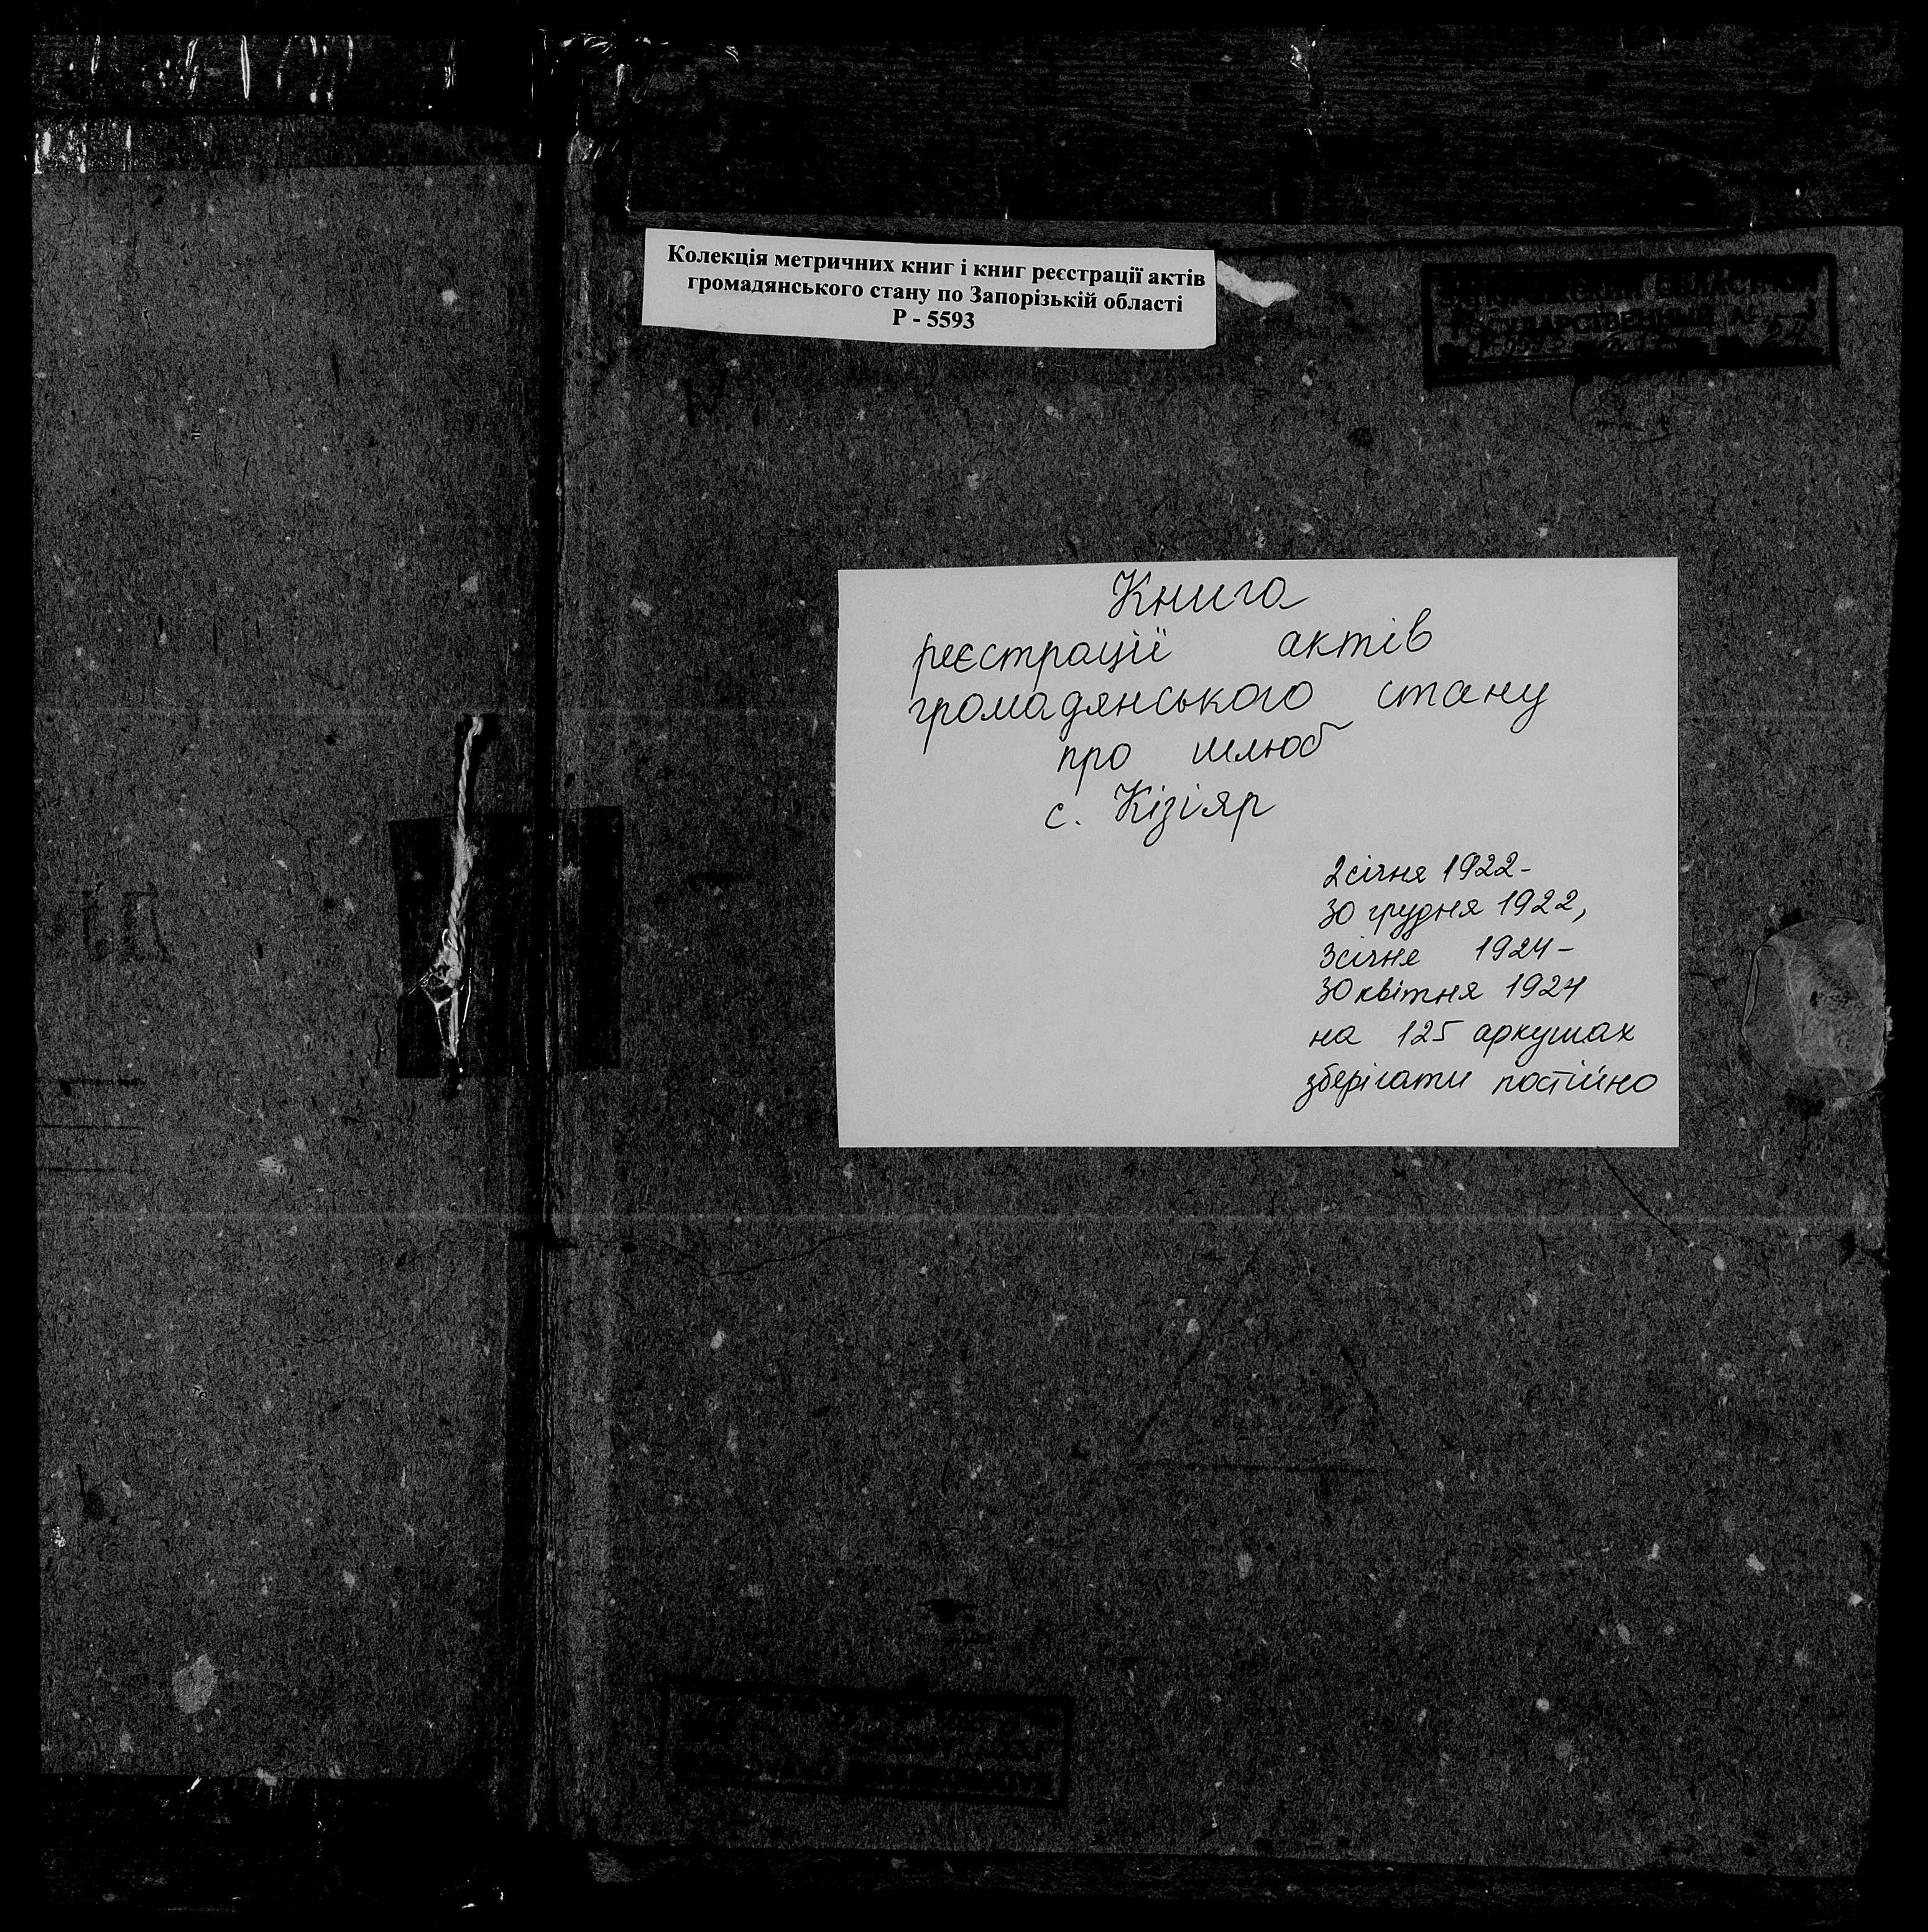 Колекція метричних книг і книг реєстрації актів
громадянського стану по Запорізькій області
Р - 5593
ЗАПОРОЖСКИЙ ОБЛАСТНОЙ
ГОСУДАРСТВЕННЫЙ
Книга
реєстрації актів
громадянського стану
про шлюб
с. Кізіяр
2 січня 1922-
30 грудня 1922,
3 січня 1924-
30 квітня 1924
на 125 аркушах
зберігати постійно